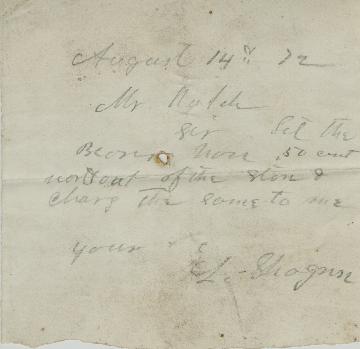 August 14th 72
Mr. Rotch
Sir Let the
Bearer have 50 cent
worth out of the store &
Charg the same to me
yours
L. Shogun